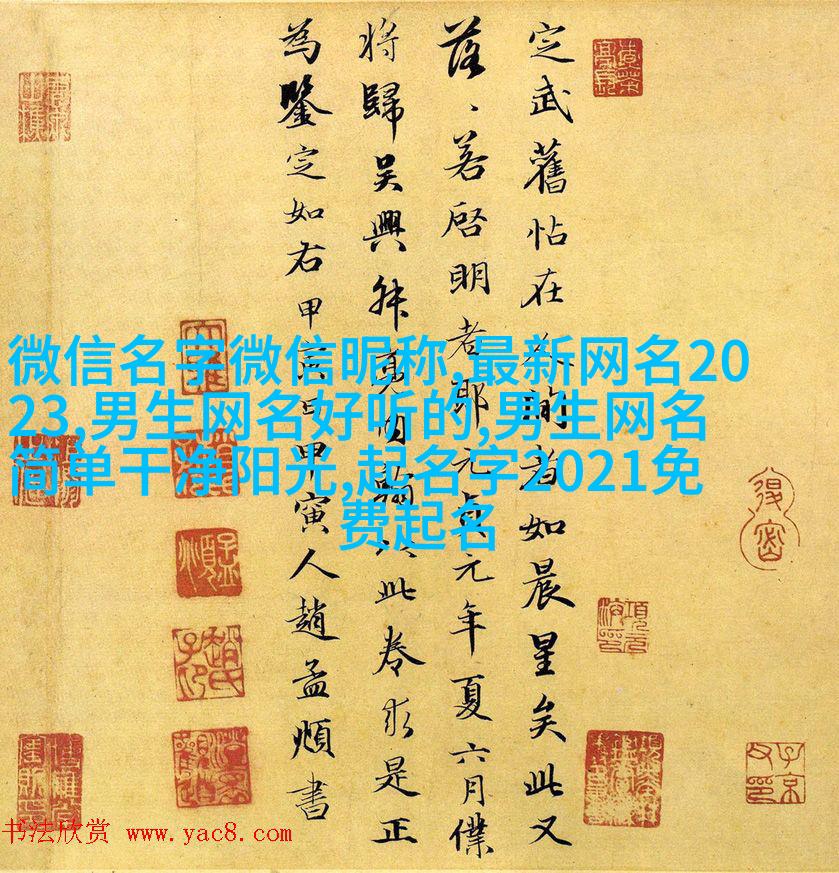 定武舊帖在人間者如晨星矣此又
落、若啓明者耶元貞元年夏六月僕
將歸吳興叔亮内翰以此卷求是正
為鑒定如右甲寅日甲寅人趙孟頫書
微信名字微信昵称,最新网名20
23,男生网名好听的,男生网名
简单干净阳光,起名字2021免
费起名
书法欣赏 www.yac8.com